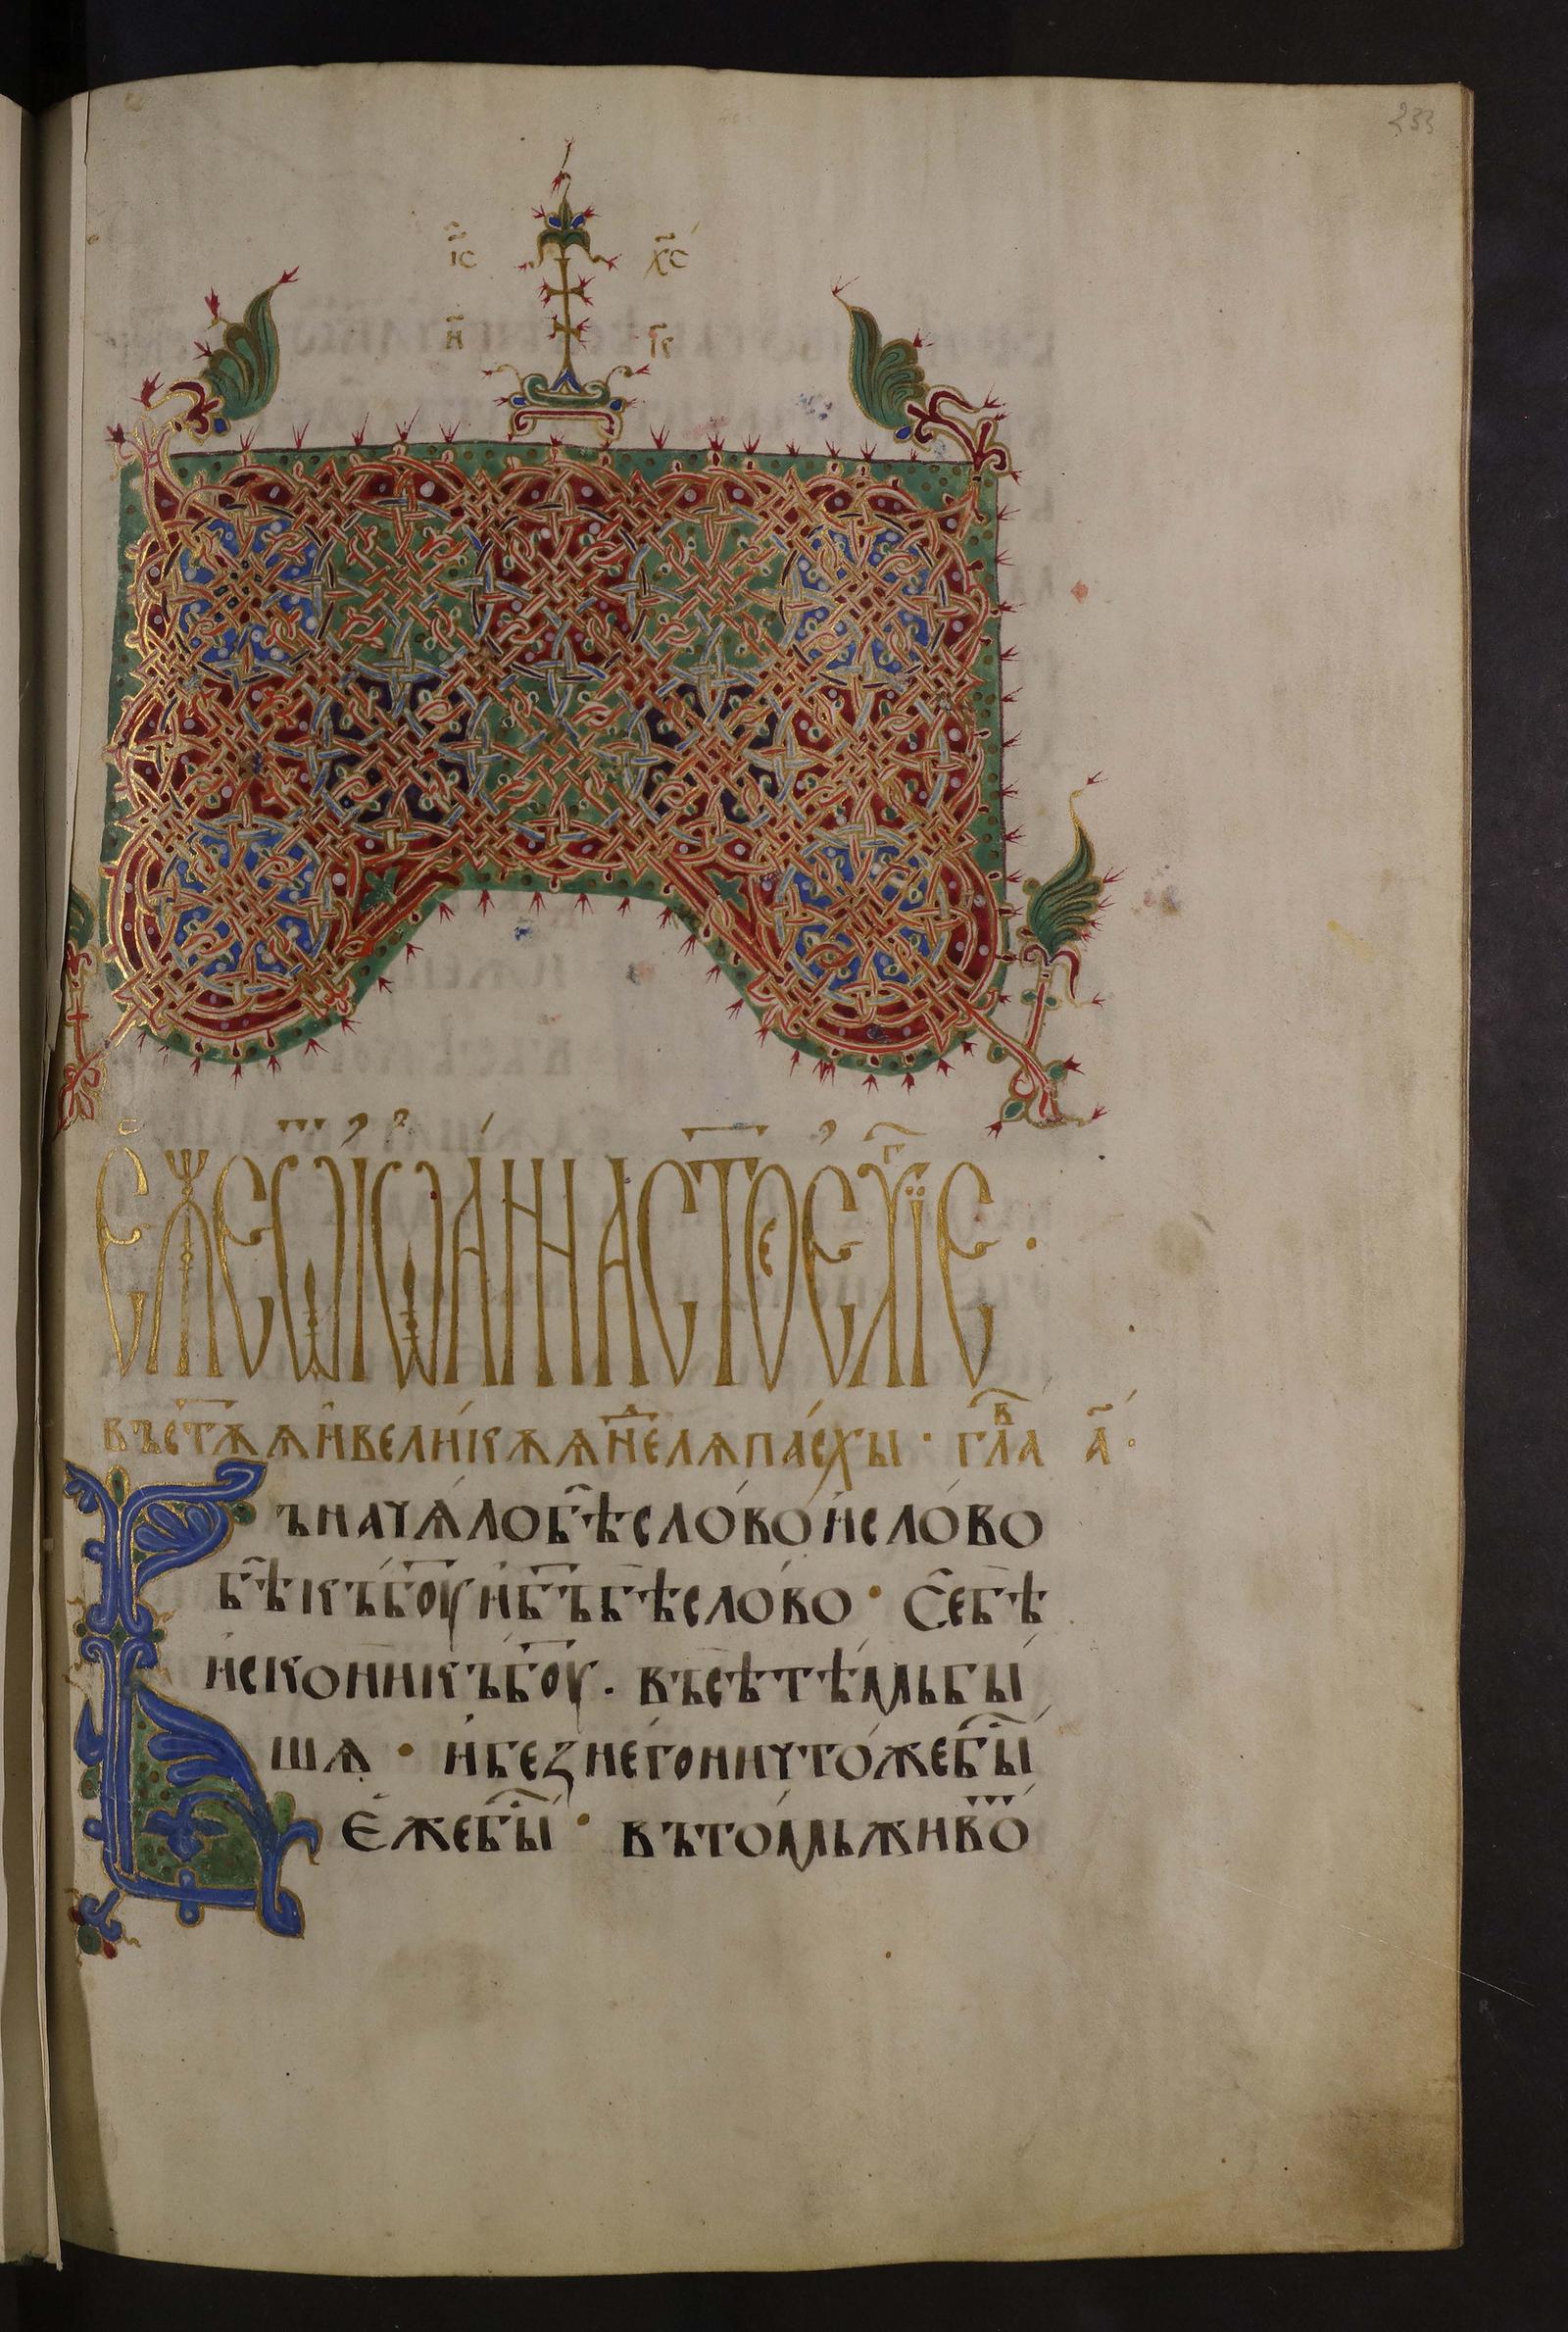 233
і҃с х҃с
н҃ к҃
Є҆же ѡ҆ іѡаннаст҃оеѵⷢ҇їе ·
въ ст҃ѫѫ и҆ великѫѫ нⷣе҃лѫ пасхы · глаⷡ҇ а҃·
Въ начѧло бѣ слово и҆ слово
бѣ къ бо҃у и҆ б҃ъ бѣ слово · Се бѣ
и҆скони къ бо҃у · въсѣ тѣмь бы
шѧ · и҆ без него ничтоже бы҇
є҆же бы҇ · въ томь живо҃